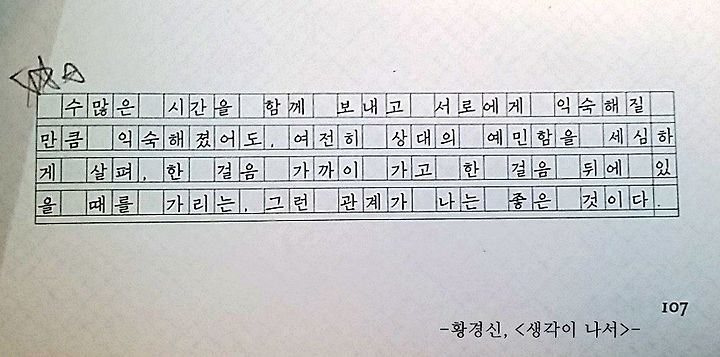 수많은 시간을 함께 보내고 서로에게 익숙해질
만큼 익숙해졌어도, 여전히 상대의 예민함을 세심하
게 살펴, 한 걸음 가까이 가고 한 걸음 뒤에 있
을 때를 가리는, 그런 관계가 나는 좋은 것이다.
107
-황경신, <생각이 나서>-